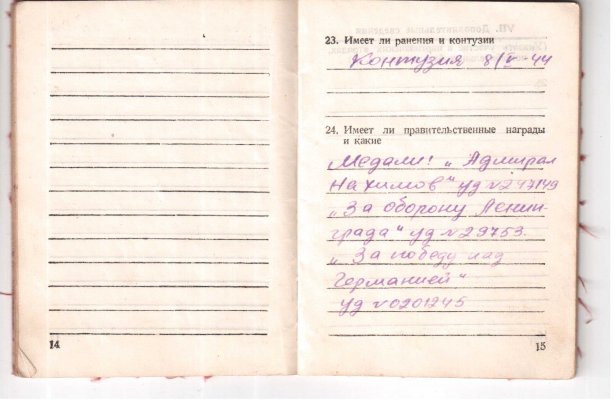 14
23. Имеет ли ранения и контузии
Контузия 8/V-44
24. Имеет ли правительственные награды
и какие
Медали: „Адмирал
Нахимов" уд №247149
„За оборону Ленин-
града" уд №29753.
„За победу над
Германией"
уд №0201245
15